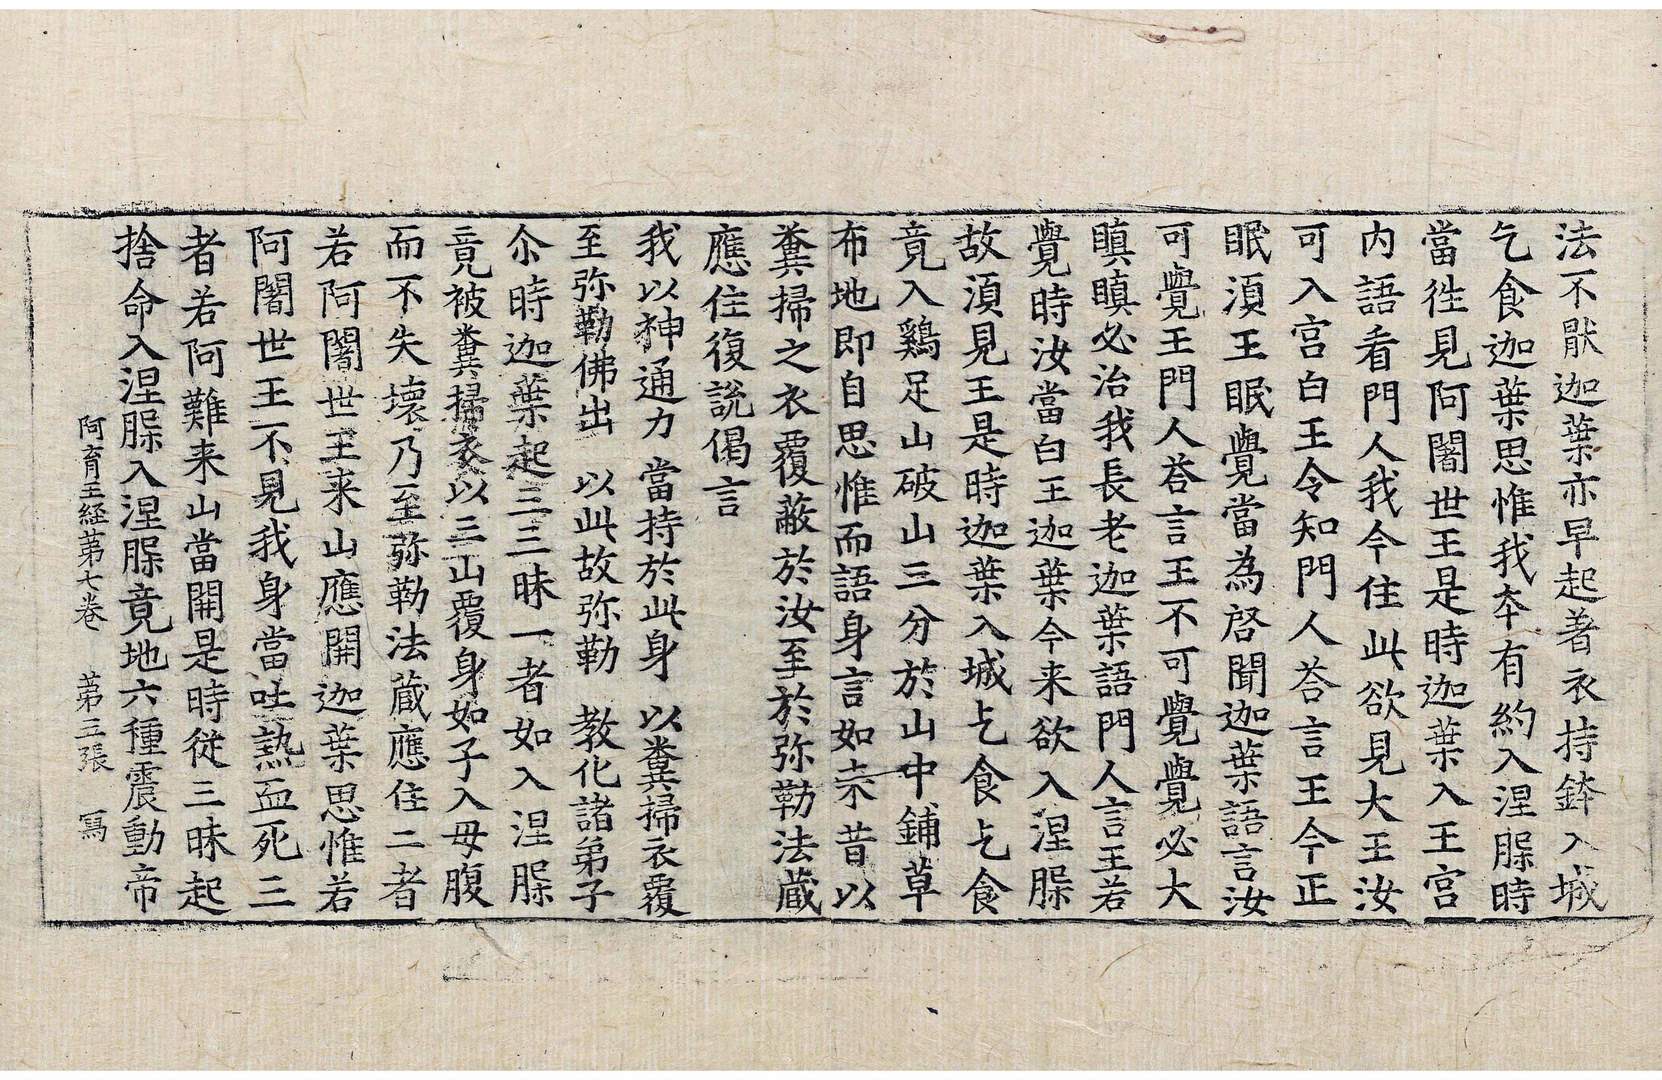 法不猒迦葉亦早起著衣持鉢入城
乞食迦葉思惟我夲有約入涅𦙶時
當徃見阿闍世王是時迦葉入王宮
内語看門人我今住此欲見大王汝
可入宮白王令知門人荅言王今正
眠湏王眠覺當為啓聞迦葉語言汝
可覺王門人荅言王不可覺覺必大
瞋瞋必治我長老迦葉語門人言王若
覺時汝當白王迦葉今来欲入涅𦙶
故湏見王是時迦葉入城乞食乞食
竟入鷄足山破山三分於山中鋪草
布地即自思惟而語身言如来昔以
糞掃之衣覆蔽於汝至於弥勒法蔵
應住復說偈言
我以神通力 當持於此身 以糞掃衣覆
至弥勒佛出 以此故弥勒 教化諸弟子
尒時迦葉起三三昧一者如入涅𦙶
竟被糞掃衣以三山覆身如子入母腹
而不失壊乃至弥勒法蔵應住二者
若阿闍世王来山應開迦葉思惟若
阿闍世王不見我身當吐熱血死三
者若阿難来山當開是時從三昧起
捨命入涅𦙶入涅𦙶竟地六種震動帝
阿育王経苐七巻 苐三張 寫